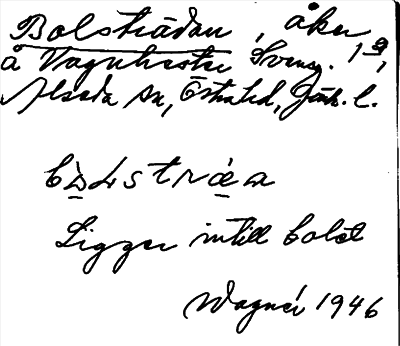 Bolsträdan, åker
å Vagnhester Sveneg. 1 a,
Alseda sn, Östra hd, Jönk. l.
bòlstrǽa
Ligger intill bolet
Wagnér 1946